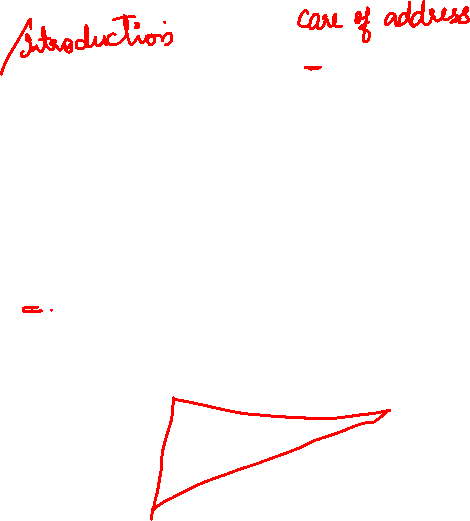 Introduction
care of address